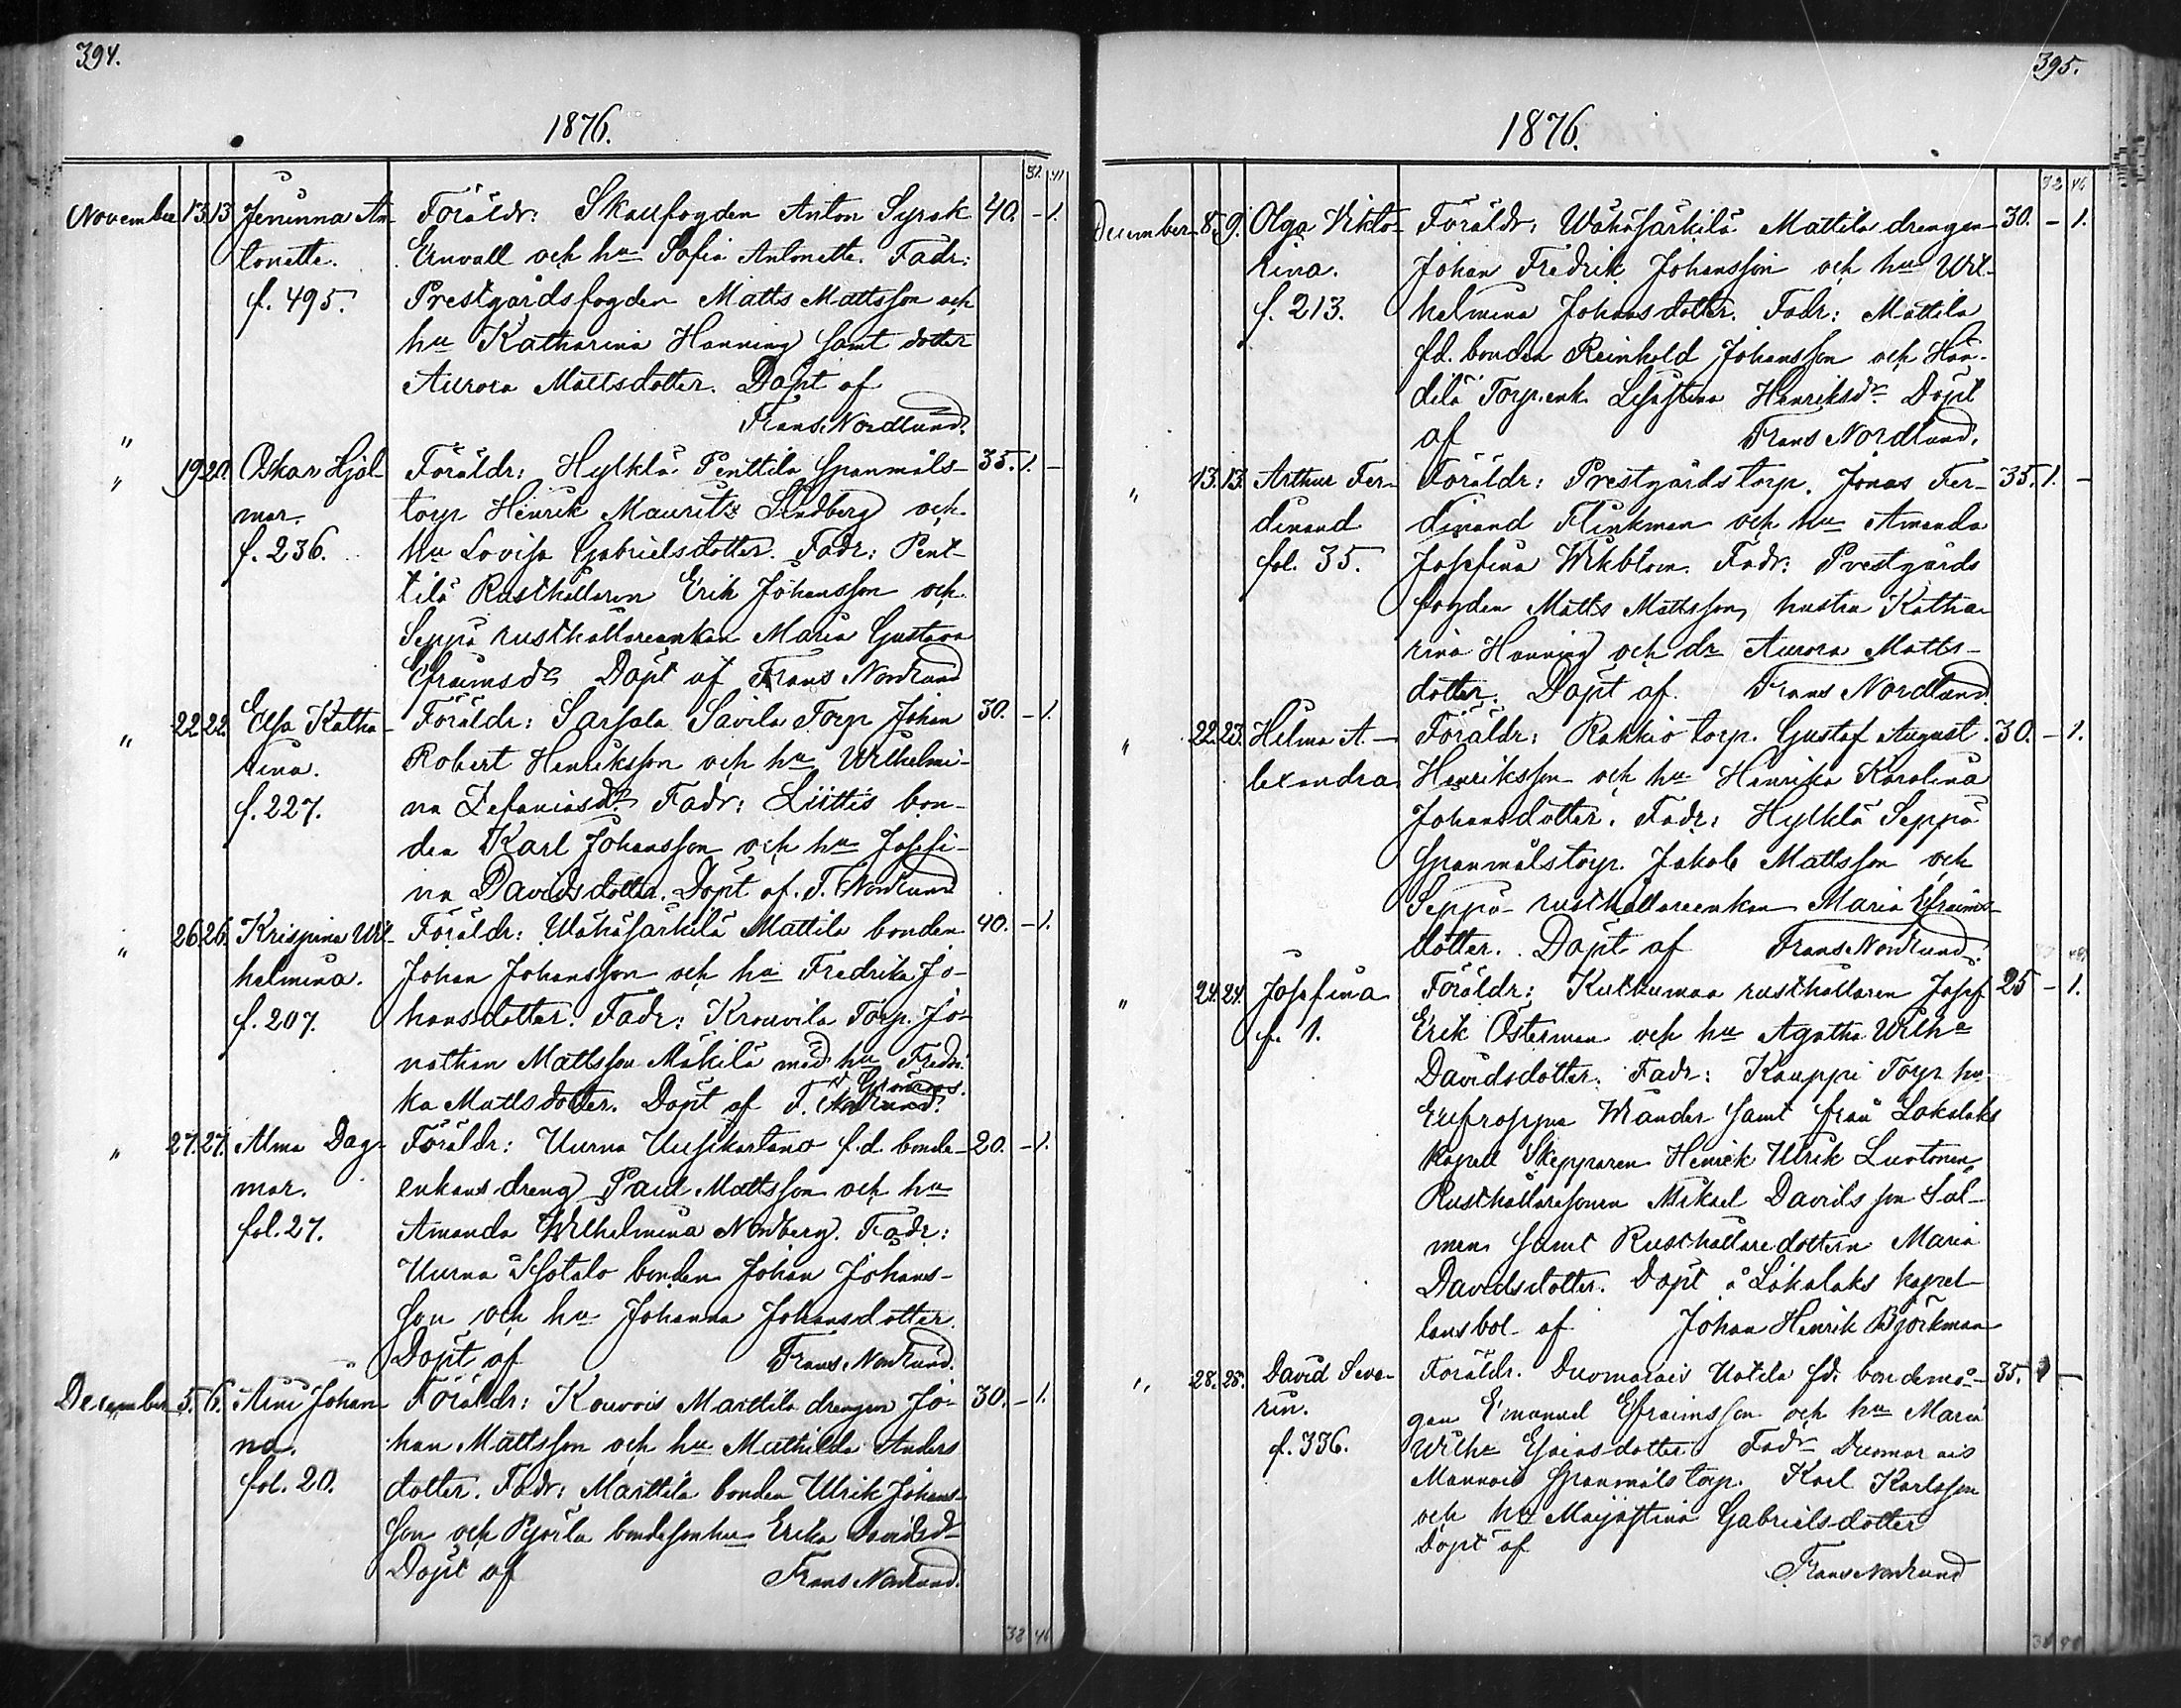 394.
1876.
31. 41
November 13. 13 Jeninna An- Föräldr: Skaufogden Anton Syrak 40. - 1.
tonette. Ernvall och hu Sofia Antonette. Fadr:
f. 495. Prestgårdsfogden Matts Mattsson och
hu Katharina Hanning samt dotter
Aurora Mattsdotter. Döpt af
" Frans Nordlund.
" 19 20. Oskar Hjal- Föräldr: Hylkla Penttila Spanmåls- 35. 1. -
mar. torp Henrik Mauritz Lindberg och
f. 236. hu Lovisa Gabrielsdotter. Fadr: Pent-
tilä Rusthållaren Erik Johansson och
Seppä rusthållareenkan Maria Gustava
Efraimsdr Döpt af Frans Nordlund
" 22 22. Elsa Katha- Föräldr: Sarsala Savila Torp Johan 30. - 1.
rina. Robert Henriksson och hu Wilhelmi-
f. 227. na Zefaniasdr Fadr: Liittis bon-
den Karl Johansson och hu Josefi-
na Davidsdotter. Döpt af F. Nordlund
" 26 26. Krispina Wil- Föräldr: Wähäsärkilä Mattila bonden 40. - 1.
helmina. Johan Johansson och hu Fredrika Jo-
f. 207. hansdotter. Fadr: Krouvila Torp. Jo-
nathan Mattsson Mäkilä med hu Fredri-
ka Mattsdotter. Döpt af F. Nordlund.
" 27. 27. Alma Dag- Föräldr: Uurna Uusikartano f.d. bonde- 20. - 1.
mar. enkans dreng Paul Mattsson och hu
fol. 27. Amanda Wilhelmina Nordberg. Fadr:
Uurna Isotalo bonden Johan Johans-
son och hu Johanna Johansdotter.
Döpt af Frans Nordlund.
December 5. 6. Aini Johan- Föräldr: Kouvois Marttila drengen Jo- 30. - 1.
na. han Mattsson och hu Mathilda Anders
fol. 20. dotter. Fadr: Marttila bonden Ulrik Johans-
son och Pjörla bondesonhu Erika Davidsdr
Döpt af Frans Nordlund.
38 46
395.
1876.
32 46
December 8. 9. Olga Vikto- Föräldr: Wähäsärkilä Mattila drengen 30. - 1.
rina. Johan Fredrik Johansson och hu Wil-
f. 213. helmina Johansdotter. Fadr: Mattila
fd. bonden Reinhold Johansson och
dilä Torp.enk. Henriksdr Döpt
af Frans Nordlund.
" 13. 13. Arthur Fer- Föräldr: Prestgårdstorp. Jonas Fer- 35. 1. -
dinand dinand Flinkman och hu Amanda
fol. 35. Josefina Wikblom. Fadr: Prestgårds
fogden Matts Mattsson, hustru Katha-
rina Hanning och dr Aurora Matts-
dotter. Döpt af Frans Nordlund.
" 22. 23. Helma A- Föräldr: Rakkio torp. Gustaf August 30. - 1.
lexandra Henriksson och hu Henrika Karolina
Johansdotter. Fadr: Hylklä Seppä
Spanmålstorp. Jakob Mattsson och
Seppä rusthållareenkan Maria Efraims-
dotter. Döpt af Frans Nordlund.
" 24. 24. Josefina Föräldr: Kutkumaa rusthållaren Josef 25 - 1.
f. 1. Erik Österman och hu Agatha Wilha
Davidsdotter. Fadr: Kauppi Torp. hu
Eufrosyna Wiander samt från Lokalaks
kapell Skepparen Henrik Ulrik Luotonen
Rusthållaresonen Mikael Davidsson Sal-
men samt Rusthållaredottern Maria
Davidsdotter. Döpt å Lokalaks kapel-
lansbol af Johan Henrik Björkman
" 28. 28. David Seve- Föräldr. Duomarais Uotila fd. bondemå- 35. 1 -
rin. gen Emanuel Efraimsson och hu Maria
f. 336. Wilha Esaiasdotter Fadr Duomarais
Mannois Spanmålstorp. Karl Karlsson
och hu Majastina Gabrielsdotter
Döpt af
Frans Nordlund